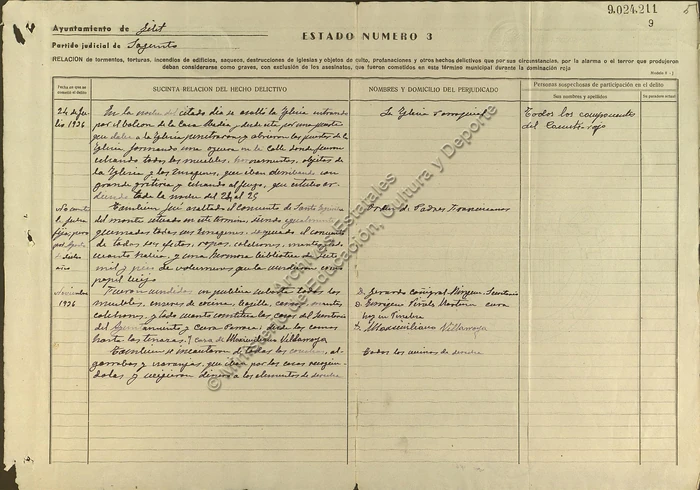 9.024.211
9
5
Ayuntamiento de Gilet
Partido judicial de Sagunto
ESTADO NUMERO 3
RELACION de tormentos, torturas, incendios de edificios, saqueos, destrucciones de Iglesias y objetos de culto, profanaciones y otros hechos delictivos que por sus circunstancias, por la alarma o el terror que produjeron
deban considerarse como graves, con exclusión de los asesinatos, que fueron cometidos en este término municipal durante la dominación roja
SUCINTA RELACION DEL HECHO DELICTIVO
NOMBRES Y DOMICILIO DEL PERJUDICADO
Personas sospechosas de participación en el delito
Sus nombres y apellidos
24 de Ju-
lio 1936
En la noche del citado día se asaltó la Iglesia entrando
por el balcon de la Casa Abadia y desde esta por una puerta
que daba a la Iglesia penetraron y abrieron las puertas de la
Iglesia, formando una hoguera en la calle donde fueron
echando todos los muebles, ornamentos, objetos de
la Iglesia y las Imagenes, que iban derribando con
grande griteria y echando al fuego, que estubo ar-
diendo toda la noche del 24 al 25
La Iglesia Parroquial
Todos los componentes
del Comité rojo
Tambien fué asaltado el convento de Santo Espiritu
del monte situado en este término, siendo igualmente
quemadas todas sus imagenes, saqueado el convento
de todos sus efectos, ropas, colchones, mantas y todo
cuanto habia, y una hermosa biblioteca de siete
mil y pico de volumenes que la vendieron como
papel viejo
Orden de Padres Franciscanos
Noviembre
1936
Fueron vendidos en publica subasta todos los
muebles, enseres de cocina, bajilla, camas, mantas
colchones, y todo cuanto constituia las casas del Secretario
del Ayuntamiento y Cura Parroco; desde las camas
hasta las tenazas. Y casa de Maximiliano Villarroya
D. Gerardo Cañigral Minguez Secretario
D. Enrique Pinols Martinez cura
hoy en Pinedra
D. Maximiliano Villarroya
Tambien se incautaron de todas las cosechas, al-
garrobas y naranjas, que iban por las casas recogien-
dolas y exigieron dinero a los elementos de derecha
todos los vecinos de derecha
© Ministerio de Educación, Cultura y Deporte
Archivos Estatales